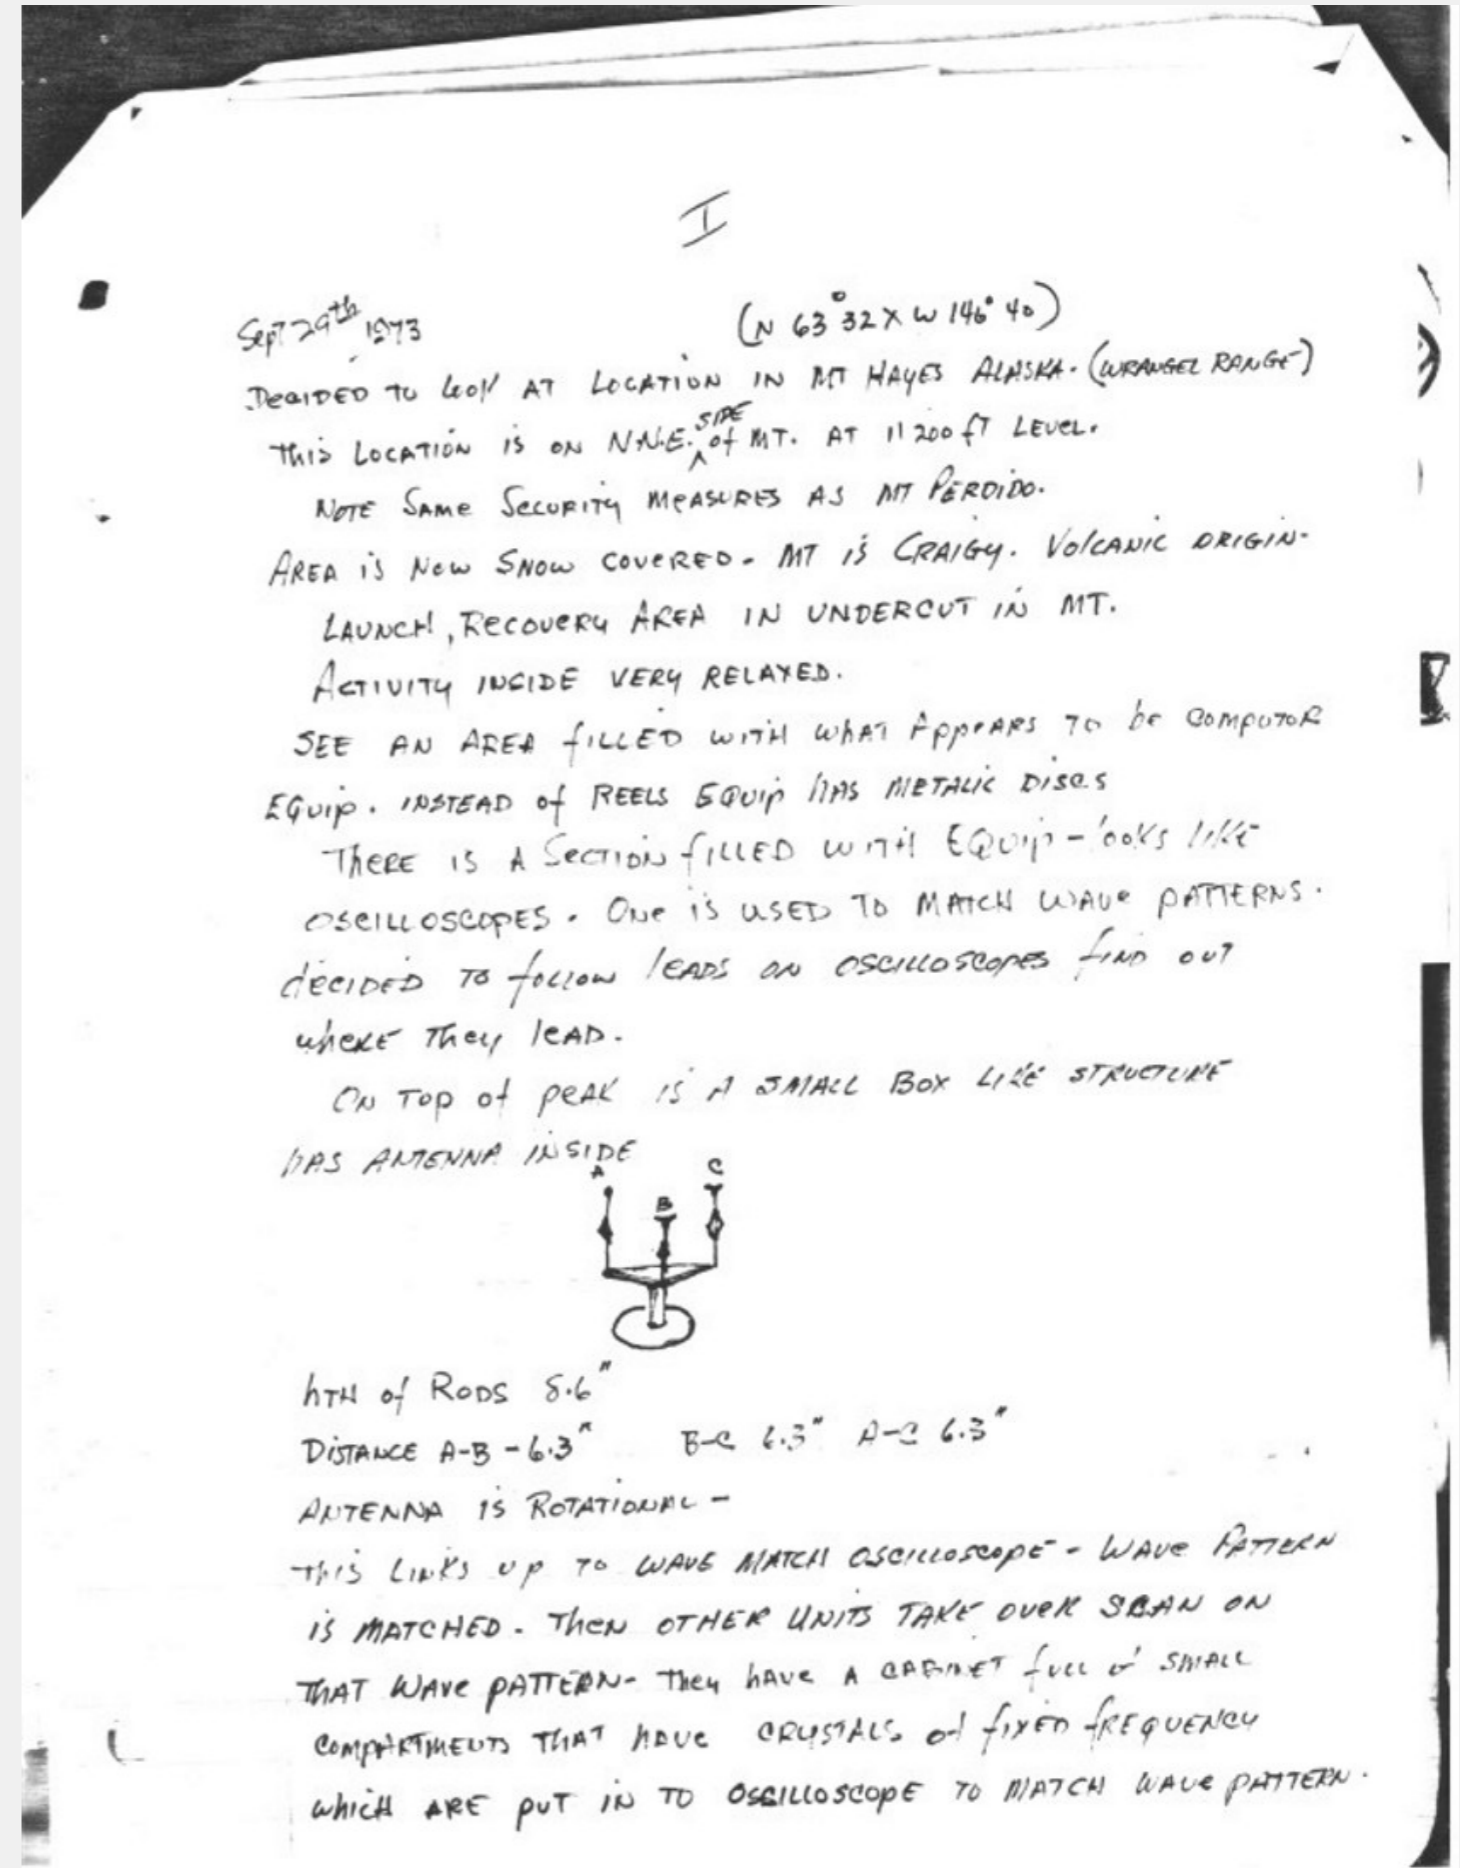 I
Sept 29th 1973 (N 63° 32 X W 146° 40)
DECIDED TO LOOK AT LOCATION IN MT HAYES ALASKA. (WRANGEL RANGE)
THIS LOCATION IS ON N.N.E. SIDE of MT. AT 11200 fT LEVEL.
NOTE SAME SECURITY MEASURES AS MT PERDIDO.
AREA is NOW SNOW COVERED. MT is CRAIGY. VOLCANIC ORIGIN.
LAUNCH, RECOVERY AREA IN UNDERCUT IN MT.
ACTIVITY INSIDE VERY RELAXED.
SEE AN AREA fILLED WITH WHAT APPEARS TO be COMPUTOR
EQUIP. INSTEAD of REELS EQUIP HAS METALIC DISCS
THERE IS A SECTION fILLED WITH EQUIP - looks like
OSCILLOSCOPES. ONE is USED TO MATCH WAVE PATTERNS.
dECIDED TO follow lEADS ON OSCILLOSCOPES fIND OUT
WHERE They lEAD.
ON TOP of PEAK IS A SMALL BOX LIKE STRUCTURE
HAS ANTENNA INSIDE
A B C
hTH of RODS 8.6"
DISTANCE A-B - 6.3" B-C 6.3" A-C 6.3"
ANTENNA IS ROTATIONAL -
THIS LINKS UP TO WAVE MATCH OSCILLOSCOPE - WAVE PATTERN
is MATCHED. THEN OTHER UNITS TAKE OVER SCAN ON
THAT WAVE PATTERN - They hAVE A CABINET fULL of SMALL
COMPARTMENTS THAT HAVE CRYSTALS of fIXED fREQUENCY
which ARE PUT IN TO OSCILLOSCOPE TO MATCH WAVE PATTERN.